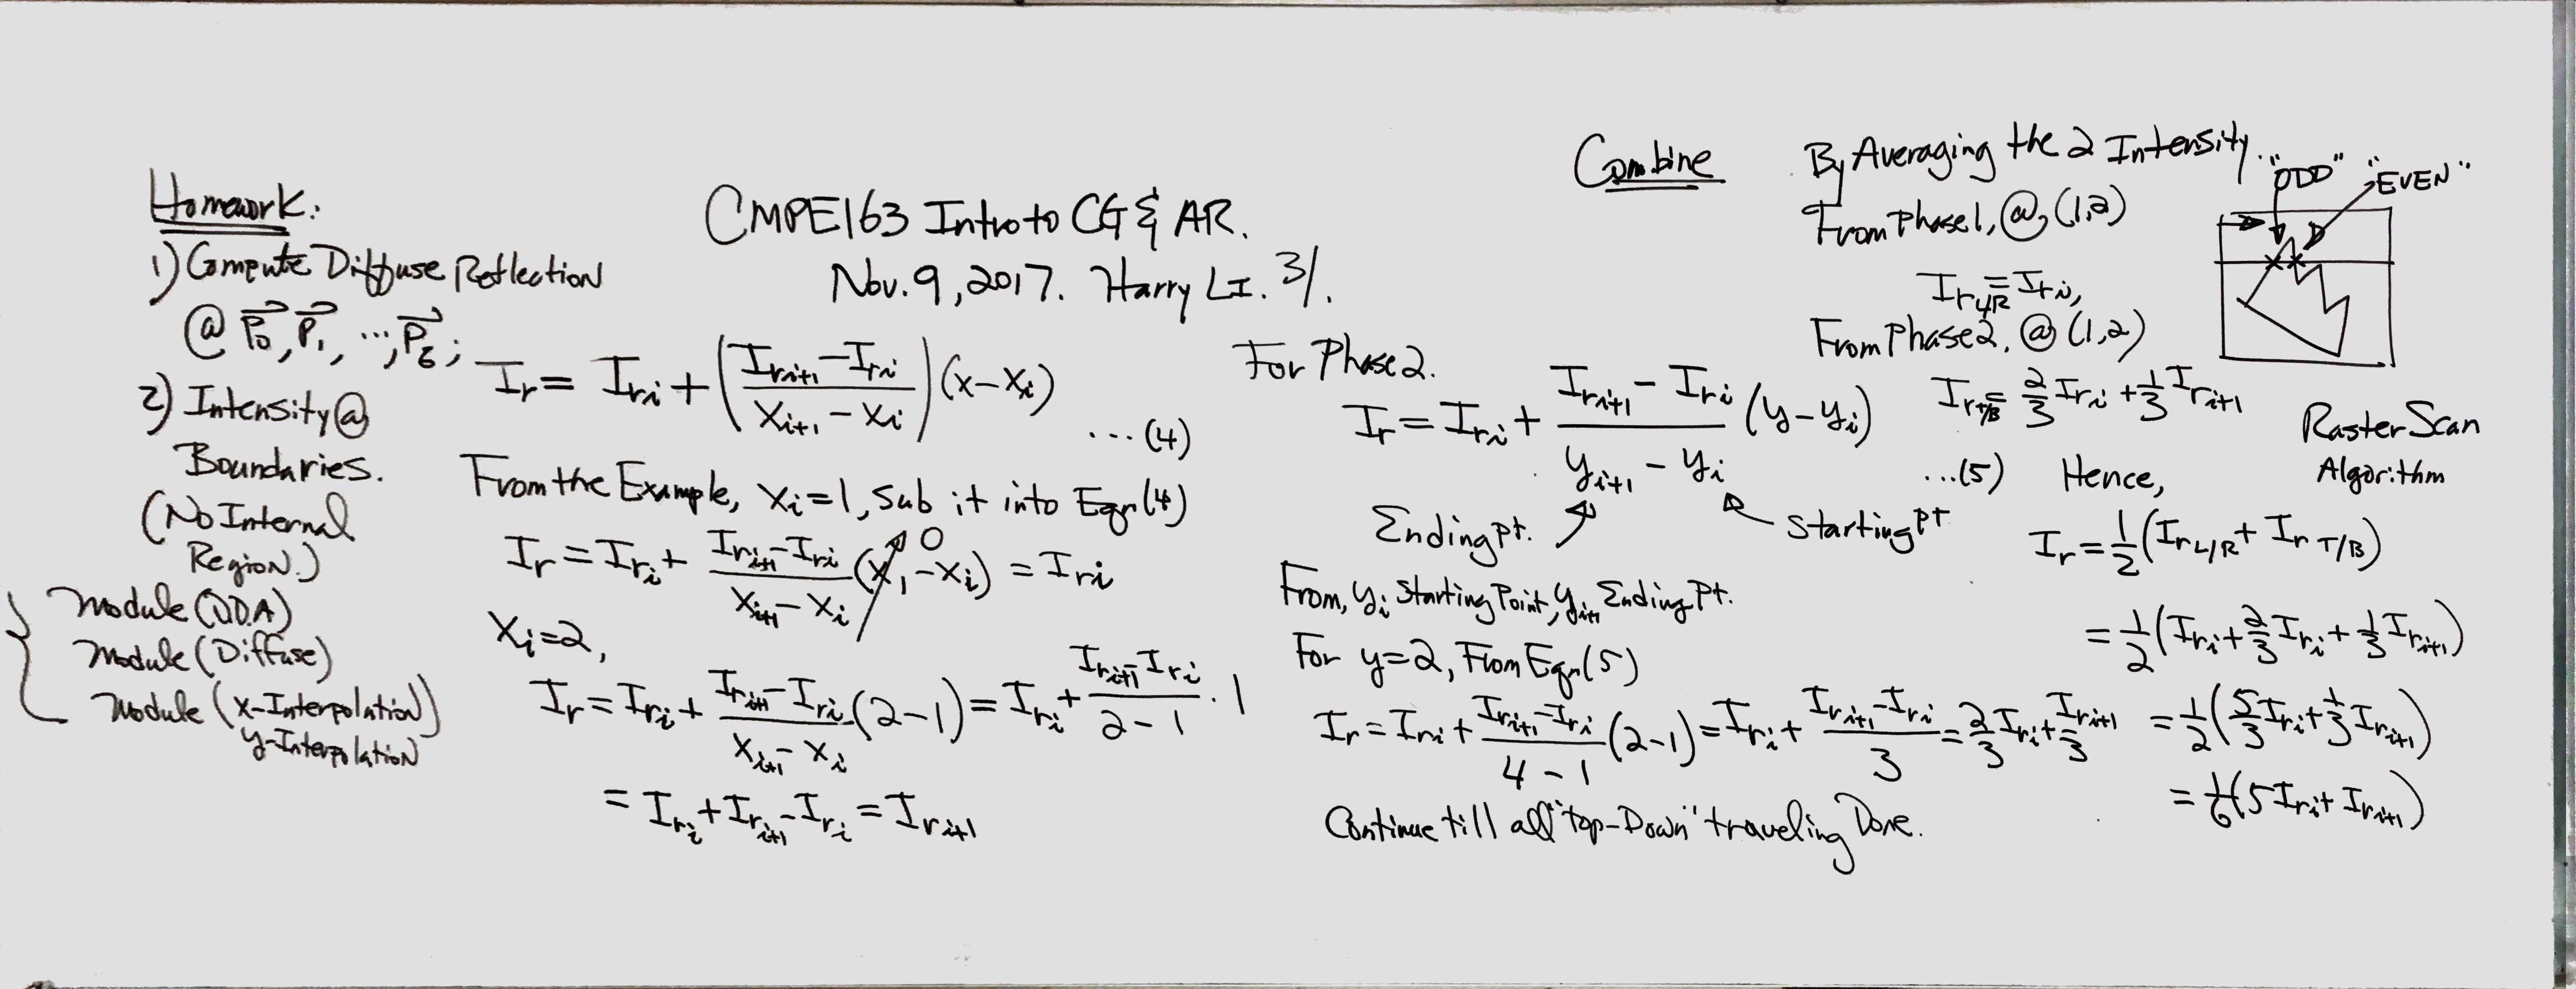 Homework:
1) Compute Diffuse Reflection
@ P⃗0, P⃗1, ..., P⃗6;
2) Intensity @
Boundaries.
(No Internal
Region.)
Module (DDA)
Module (Diffuse)
Module (x-Interpolation)
y-Interpolation
CMPE163 Intro to CG & AR.
Nov. 9, 2017. Harry LI. 3/.
Ir = Iri + ((Iri+1 − Iri)/(xi+1 − xi))(x − xi)
...(4)
From the Example, xi = 1, sub it into Eqn(4)
Ir = Iri + (Iri+1 − Iri)/(xi+1 − xi) (x1 − xi) 0 = Iri
xi = 2,
Ir = Iri + (Iri+1 − Iri)/(xi+1 − xi) (2 − 1) = Iri + (Iri+1 − Iri)/(2 − 1) · 1
= Iri + Iri+1 − Iri = Iri+1
For Phase 2.
Ir = Iri + (Iri+1 − Iri)/(yi+1 − yi) (y − yi)
...(5)
Ending pt.
Starting pt
From, yi Starting Point, yi+1 Ending Pt.
For y = 2, From Eqn(5)
Ir = Iri + (Iri+1 − Iri)/(4 − 1) (2 − 1) = Iri + (Iri+1 − Iri)/3 = 2/3 Iri + Iri+1/3
Continue till all "top-Down" traveling Done.
Combine
By Averaging the 2 Intensity.
From Phase 1, @ (1,2)
IrL/R = Iri,
From Phase 2, @ (1,2)
IrT/B = 2/3 Iri + 1/3 Iri+1
Hence,
Ir = 1/2 (IrL/R + IrT/B)
= 1/2 (Iri + 2/3 Iri + 1/3 Iri+1)
= 1/2 (5/3 Iri + 1/3 Iri+1)
= 1/6 (5 Iri + Iri+1)
"ODD"
"EVEN"
Raster Scan
Algorithm